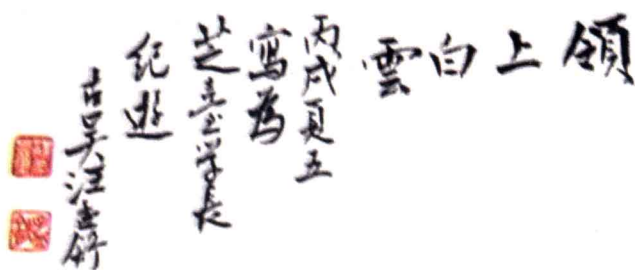 領上白雲
丙戌夏五
寫為
芝臺学長
紀遊
古吳汪